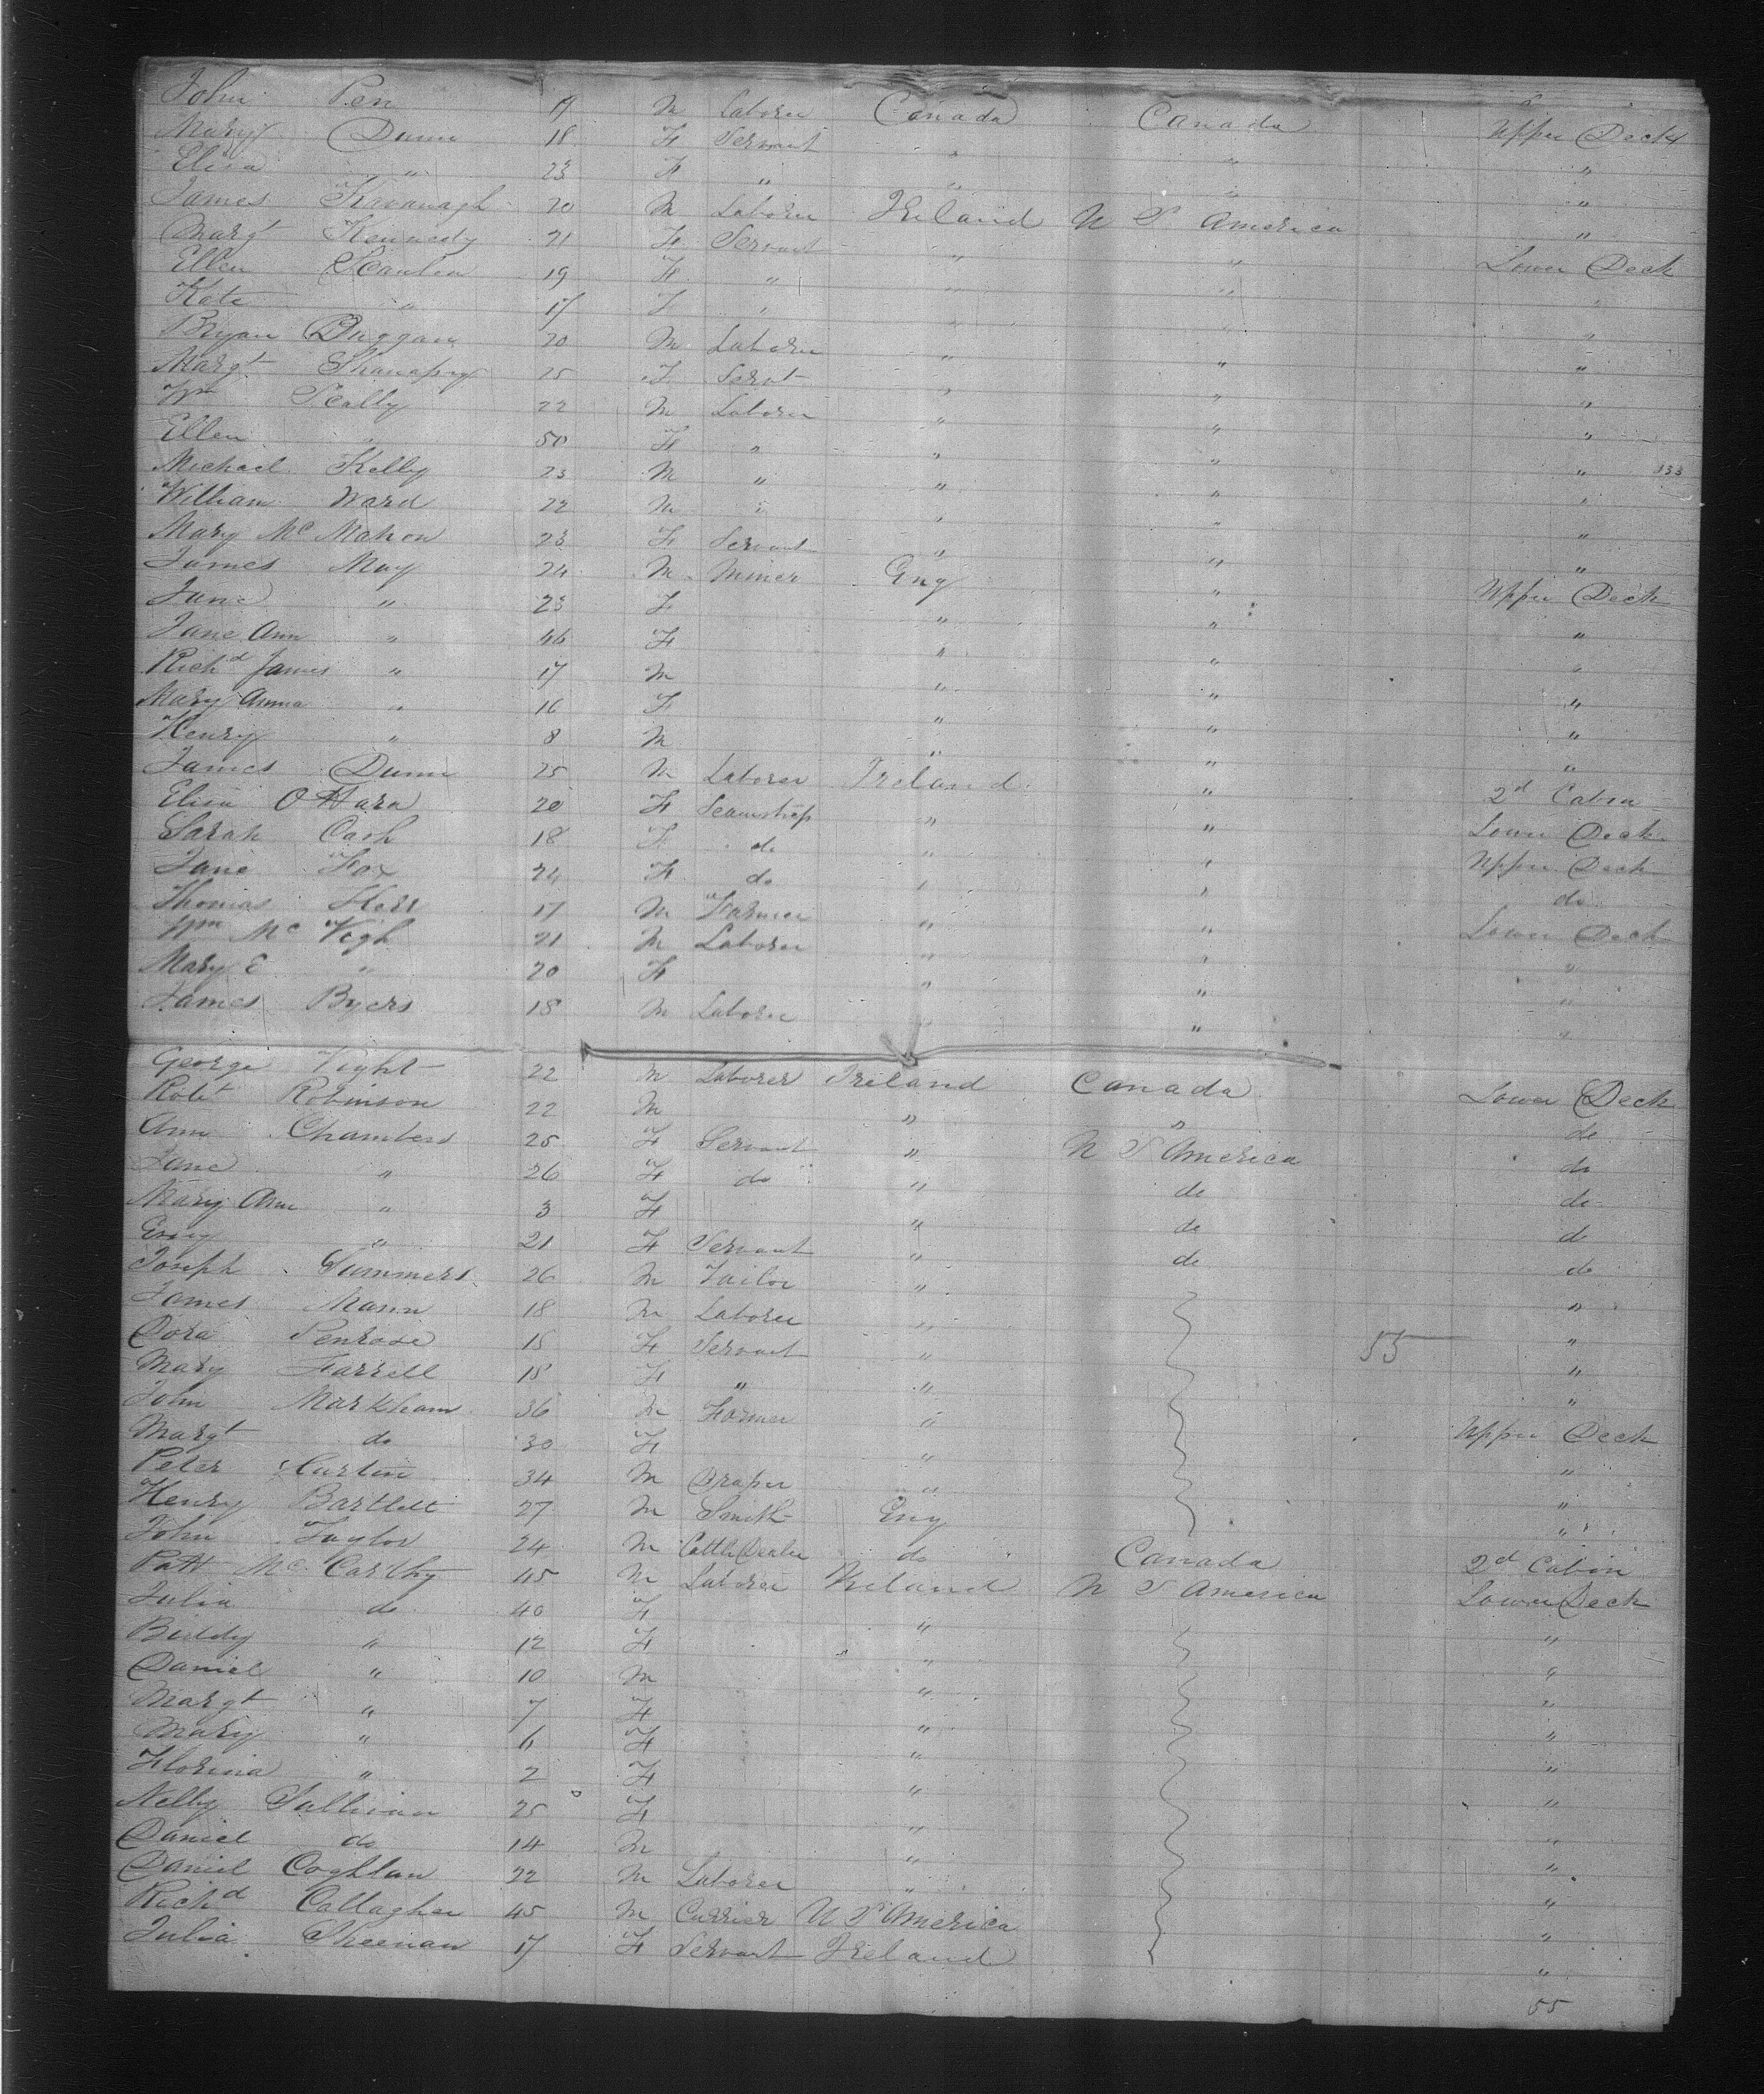 John Pen 19 M Laborer Canada Canada Upper Deck
Mary Dunn 18 F Servant " " "
Eliza " 23 F " " " "
James Kavanagh 20 M Laborer Ireland U S America "
Margt Kennedy 21 F Servant " " Lower Deck
Ellen Scanlan 19 F " " " "
Kate " 17 F " " " "
Bryan Duggan 20 M Laborer " " "
Margt 25 F Servt " " "
Wm Scally 22 M Laborer " " "
Ellen " 50 F " " " "
Michael Kelly 23 M " " " " 133
William Ward 22 M " " " "
Mary McMahon 23 F Servant " " "
James May 24 M Miner Eng " Upper Deck
Jane " 23 F " " "
Jane Ann " 46 F " " "
Richd James " 17 M " " "
Mary Anna " 16 F " " "
Henry " 8 M " " "
James Dunn 25 M Laborer Ireland " 2d Cabin
Eliza O'Hara 20 F Seamstress " " Lower Deck
Sarah Cash 18 F do " " Upper Deck
Jane Fox 24 F do " " do
Thomas Kerr 17 M Farmer " " Lower Deck
Wm McVegh 21 M Laborer " " "
Mary E " 20 F " " "
James Byers 18 M Laborer " " "
George Tight 22 M Laborer Ireland Canada Lower Deck
Robt Robinson 22 M " " do
Ann Chambers 25 F Servant " U S America do
Jane " 26 F do " do do
Mary Ann " 3 F " do do
" 21 F Servant " do do
Joseph Summers 26 M Tailor " "
James Mann 18 M Laborer " "
Dora Penrose 18 F Servant " 55 "
Mary Farrell 18 F " " "
John Markham 36 M Farmer " Upper Deck
Margt do 30 F " "
Peter Curtin 34 M Draper " "
Henry Bartlett 27 M Smith Eng "
John Taylor 24 M Cattle Dealer do Canada 2d Cabin
Patt McCarthy 45 M Laborer Ireland U S America Lower Deck
Julia do 40 F " "
Biddy " 12 F " "
Daniel " 10 M " "
Margt " 7 F " "
Mary " 6 F " "
Florina " 2 F " "
Nelly Sullivan 25 F " "
Daniel do 14 M " "
Daniel Coghlan 22 M Laborer " "
Richd Callaghan 45 M Currier U S America "
Julia Sheenan 17 F Servant Ireland "
55